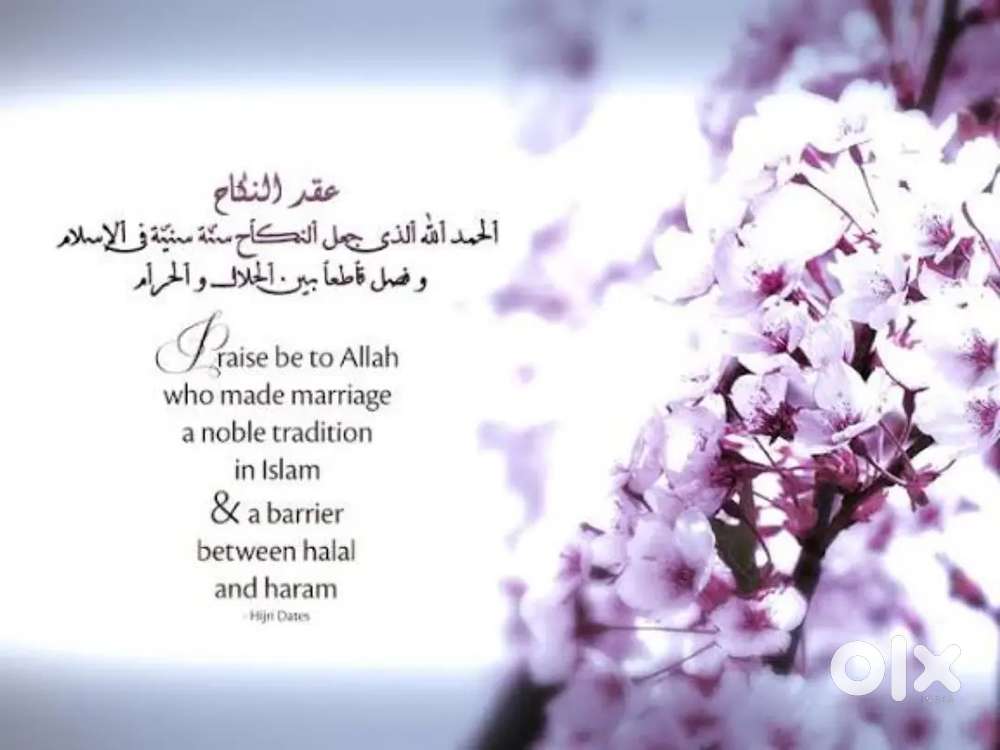 عقد النكاح
الحمد لله الذي جعل النكاح سنّة سنيّة في الإسلام
و فصل قاطعاً بين الحلال و الحرام
Praise be to Allah
who made marriage
a noble tradition
in Islam
& a barrier
between halal
and haram
- Hijri Dates
olx